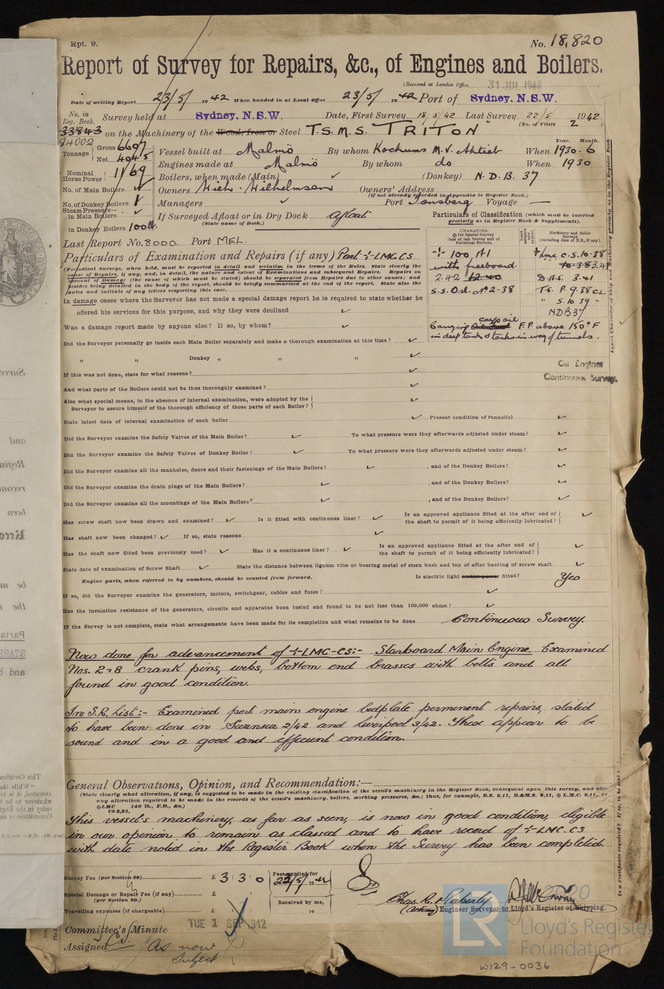 Rpt. 9.
No. 18,820
Report of Survey for Repairs, &c., of Engines and Boilers.
(Received at London Office 31 JUL 1942
Date of writing Report 23/5/ 1942 When handed in at Local Office 23/5/ 1942 Port of Sydney, N.S.W.
No. in Reg. Book. Survey held at Sydney, N.S.W. Date, First Survey 18/5/42 Last Survey 22/5 1942
(No. of Visits 2)
33843 on the Machinery of the Wood, Iron or Steel T.S.M.S. "TRITON"
84002
Tonnage Gross 6607 Net 4045
Vessel built at Malmö By whom Kockums M.V. Aktieb When 1930-6
Year. Month.
Engines made at Malmö By whom do When 1930
Nominal Horse Power 1169
Boilers, when made (Main) (Donkey) N.D.B. 37
No. of Main Boilers
Owners Wilh. Wilhelmsen Owners' Address
(if not already recorded in Appendix to Register Book.)
No. of Donkey Boilers
Managers Port Tønsberg Voyage —
Steam Pressure in Main Boilers
If Surveyed Afloat or in Dry Dock Afloat
(State name of Dock.)
in Donkey Boilers 100 lb
Last Report No. 8000 Port MEL.
Particulars of Classification (which must be inserted precisely as in Register Book & Supplements).
Particulars of Examination and Repairs (if any) Part +LMC.CS
+ 100 A1
with freeboard
2.42
S.S. Osl. 2-38
+LMC C.S. 10.38
D.B.S. 3.41
T.S. P. 9.38 CL.
S. 10.39
NDB 37
Carrying cargo oil F.P. above 150°F
in deep tanks & tanks in way of tunnels.
Oil Engines
Continuous Survey.
In damage cases where the Surveyor has not made a special damage report he is required to state whether he
offered his services for this purpose, and why they were declined
Was a damage report made by anyone else? If so, by whom?
Did the Surveyor personally go inside each Main Boiler separately and make a thorough examination at this time?
" " Donkey " " "
If this was not done, state for what reasons?
And what parts of the Boilers could not be thus thoroughly examined?
Also what special means, in the absence of internal examination, were adopted by the
Surveyor to assure himself of the thorough efficiency of those parts of each Boiler?
State latest date of internal examination of each boiler Present condition of Funnel(s)
Did the Surveyor examine the Safety Valves of the Main Boiler? To what pressure were they afterwards adjusted under steam?
Did the Surveyor examine the Safety Valves of Donkey Boiler? To what pressure were they afterwards adjusted under steam?
Did the Surveyor examine all the manholes, doors and their fastenings of the Main Boilers? , and of the Donkey Boilers?
Did the Surveyor examine the drain plugs of the Main Boilers? , and of the Donkey Boilers?
Did the Surveyor examine all the mountings of the Main Boilers? , and of the Donkey Boilers?
Has screw shaft now been drawn and examined? Is it fitted with continuous liner? Is an approved appliance fitted at the after end of the shaft to permit of it being efficiently lubricated?
Has shaft now been changed? If so, state reasons
Has the shaft now fitted been previously used? Has it a continuous liner? Is an approved appliance fitted at the after end of the shaft to permit of it being efficiently lubricated?
State date of examination of Screw Shaft State the distance between lignum vitæ or bearing metal of stern bush and top of after bearing of screw shaft
Engine parts, when referred to by numbers, should be counted from forward. Is electric light fitted? Yes
If so, did the Surveyor examine the generators, motors, switchgear, cables and fuses?
Has the insulation resistance of the generators, circuits and apparatus been tested and found to be not less than 100,000 ohms?
If the Survey is not complete, state what arrangements have been made for its completion and what remains to be done Continuous Survey.
Now done for advancement of +LMC-CS:- Starboard Main Engine. Examined
Nos. 2 & 8 crank pins, webs, bottom end brasses with bolts and all
found in good condition.
In S.R. List:- Examined port main engine bedplate permanent repairs, stated
to have been done in Swansea 2/42 and Liverpool 3/42. These appear to be
sound and in a good and efficient condition.
General Observations, Opinion, and Recommendation:—
This vessel's machinery, as far as seen, is now in good condition, eligible
in our opinion to remain as classed and to have record of +LMC.CS
with date noted in the Register Book when the Survey has been completed.
Survey Fee (per Section 29) £ 3:3:0 Fees applied for 22/5/ 1942
Special Damage or Repair Fee (if any) (per Section 29.) £
Received by me,
Travelling expenses (if chargeable) £ 19
(Acting) Engineer Surveyor to Lloyd's Register of Shipping.
Committee's Minute TUE 1 SEP 1942
Assigned As now
Subject
LR
© 2020
Lloyd's Register
Foundation
W129-0036